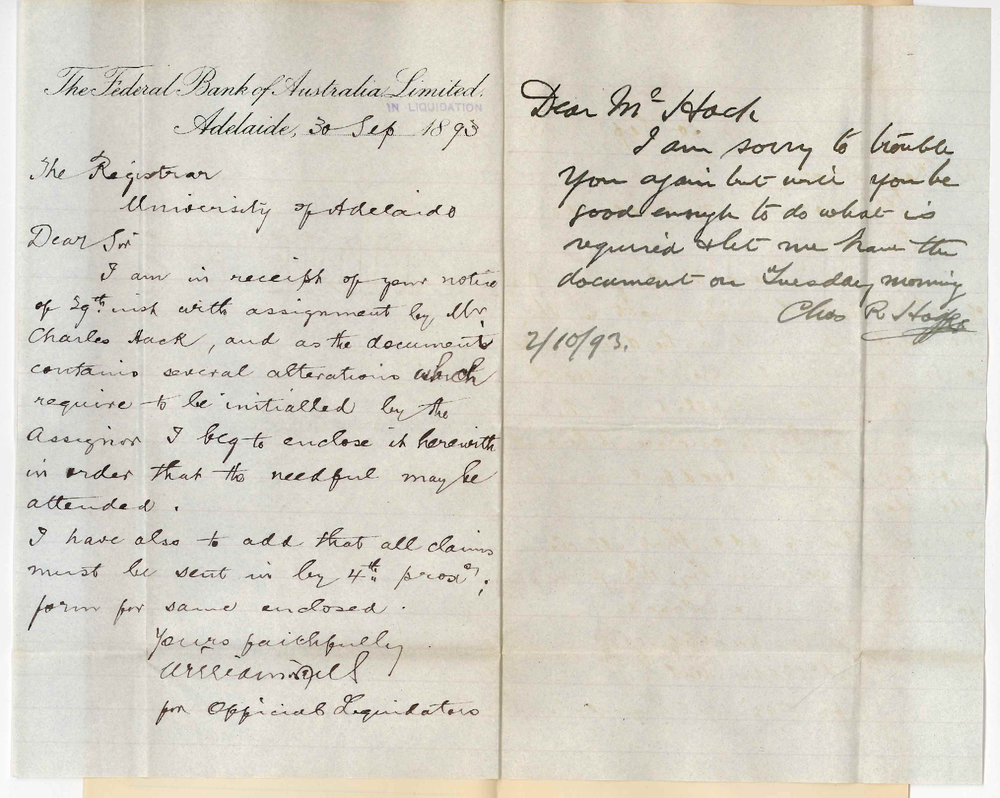 The Federal Bank of Australia Limited.
IN LIQUIDATION
Adelaide, 30 Sep 1893
The Registrar
University of Adelaide
Dear Sir
I am in receipt of your note
of 29th inst with assignment by Mr
Charles Hack, and as the document
contains several alterations which
require to be initialled by the
Assignor I beg to enclose it herewith
in order that the needful may be
attended.
I have also to add that all claims
must be sent in by 4th proxo;
form for same enclosed.
Yours faithfully
for Official Liquidators
Dear Mr Hack
I am sorry to trouble
you again but will you be
good enough to do what is
required & let me have the
document on Tuesday morning
Chas R. Hodge
2/10/93.